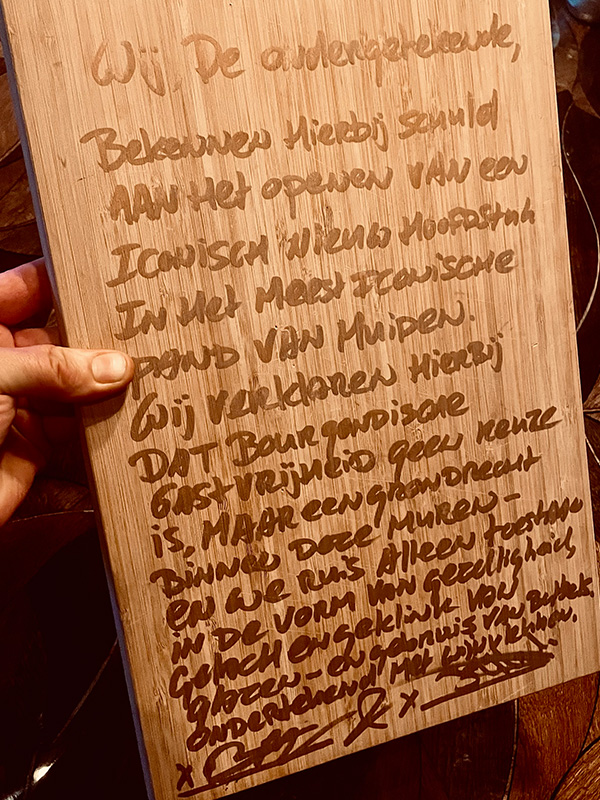 Wij, De ondergetekende,
Bekennen Hierbij schuld
AAN Het openen VAN een
Iconisch nieuw Hoofdstuk
In Het meest Iconische
PAND VAN MUIDEN.
Wij verklaren Hierbij
DAT Bourgondische
Gastvrijheid geen keuze
is, MAAR een grondrecht
Binnen Deze Muren -
en we ruis Alleen toestaan
in De vorm van gezelligheid,
gelach en geklink van
glazen - en gebruis van
ondertekend met
x x